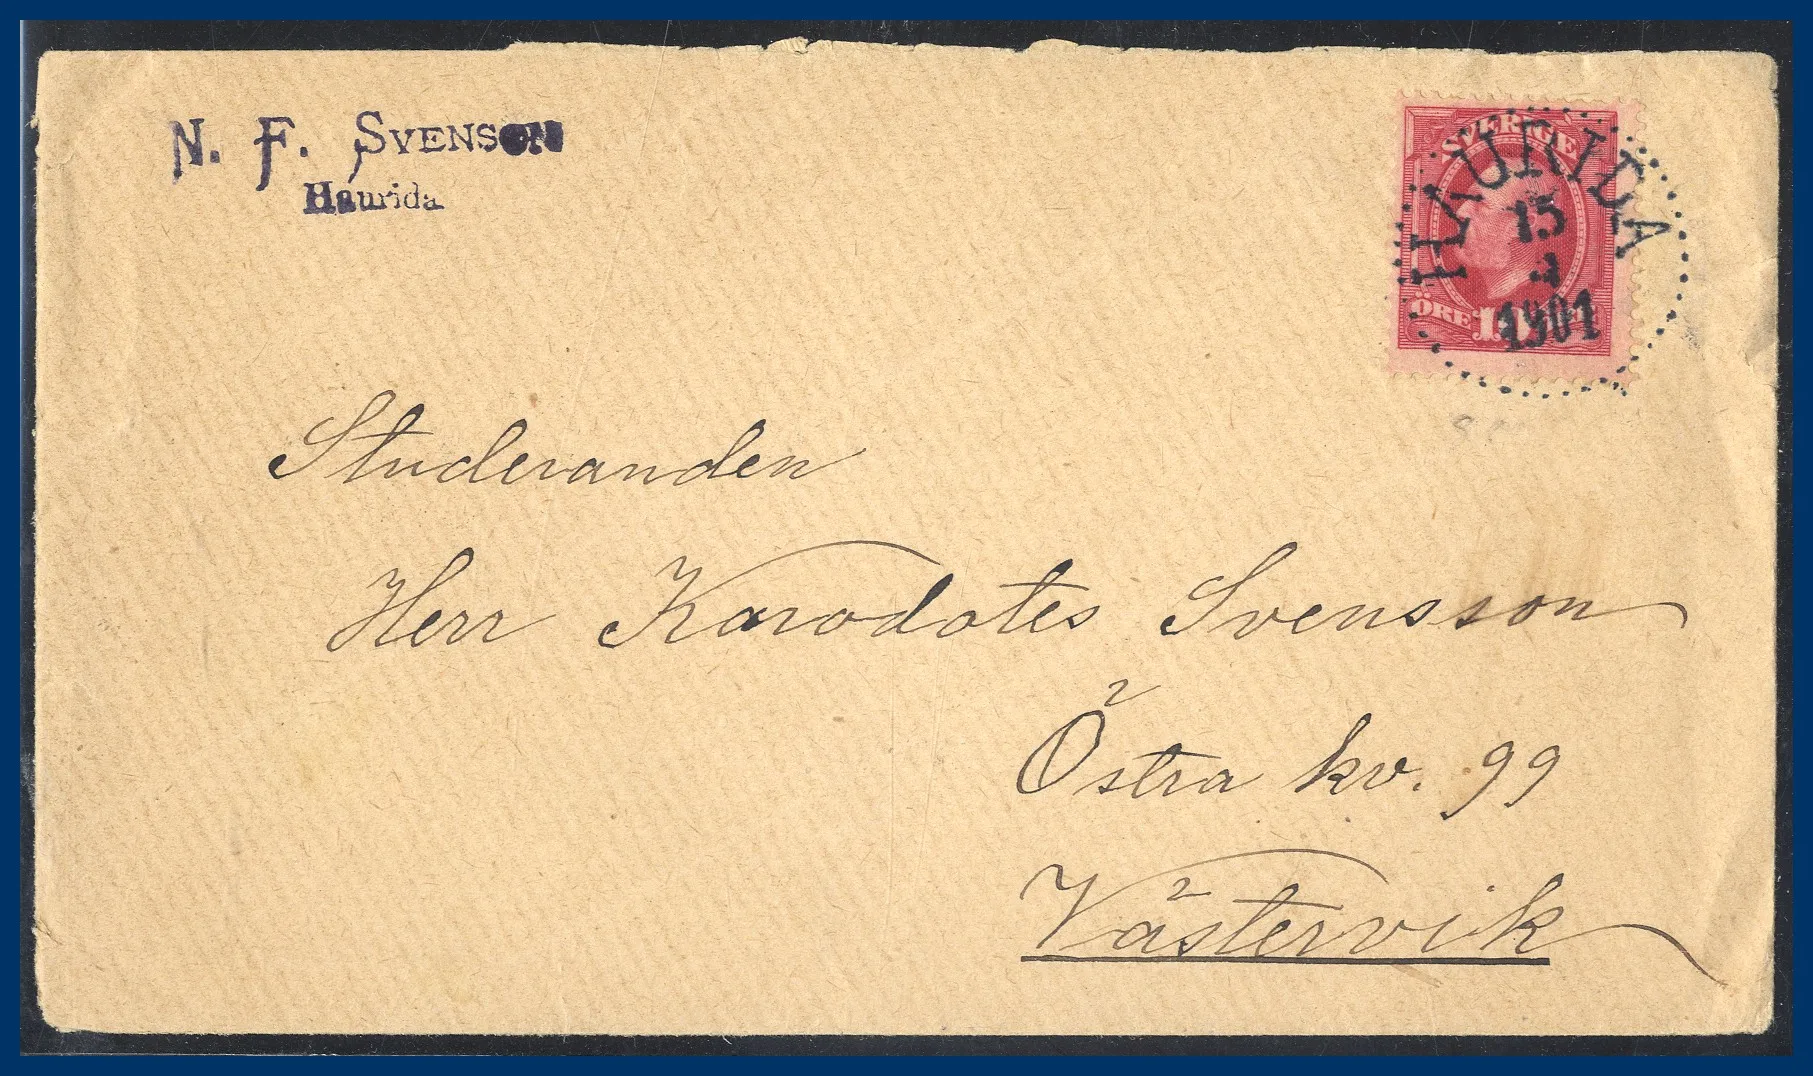 N. F. SVENSON
Haurida
SVERIGE
ÖRE 10
HAURIDA
15
1901
Studeranden
Herr Karodotes Svensson
Östra kv. 99
Västervik